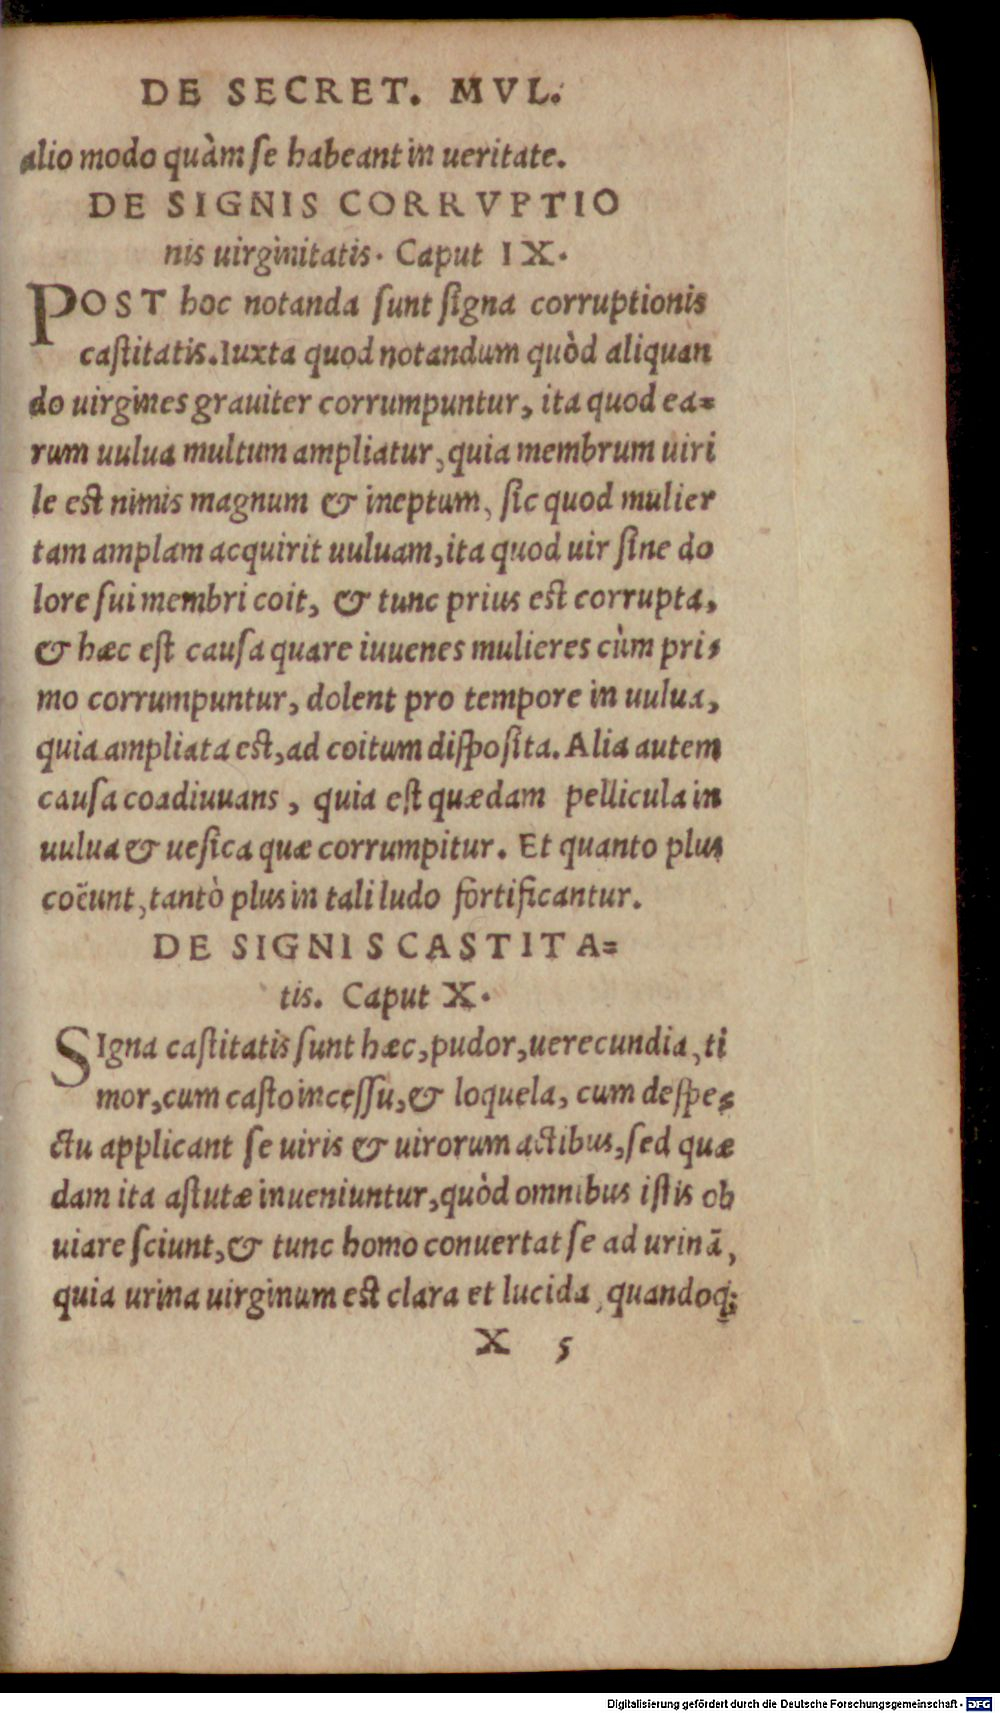 DE SECRET. MVL.
alio modo quàm se habeant in ueritate.
DE SIGNIS CORRVPTIO
nis uirginitatis. Caput IX.
POST hoc notanda sunt signa corruptionis
castitatis. Iuxta quod notandum quòd aliquan
do uirgines grauiter corrumpuntur, ita quod ea=
rum uulua multum ampliatur, quia membrum uiri
le est nimis magnum & ineptum, sic quod mulier
tam amplam acquirit uuluam, ita quod uir sine do
lore sui membri coit, & tunc prius est corrupta,
& hæc est causa quare iuuenes mulieres cùm pri=
mo corrumpuntur, dolent pro tempore in uulua,
quia ampliata est, ad coitum disposita. Alia autem
causa coadiuuans, quia est quædam pellicula in
uulua & uesica quæ corrumpitur. Et quanto plus
coëunt, tantò plus in tali ludo fortificantur.
DE SIGNIS CASTITA=
tis. Caput X.
SIgna castitatis sunt hæc, pudor, uerecundia, ti
mor, cum casto incessu, & loquela, cum despe=
ctu applicant se uiris & uirorum actibus, sed quæ
dam ita astutæ inueniuntur, quòd omnibus istis ob
uiare sciunt, & tunc homo conuertat se ad urinā,
quia urina uirginum est clara et lucida, quandoq;
X 5
Digitalisierung gefördert durch die Deutsche Forschungsgemeinschaft - DFG